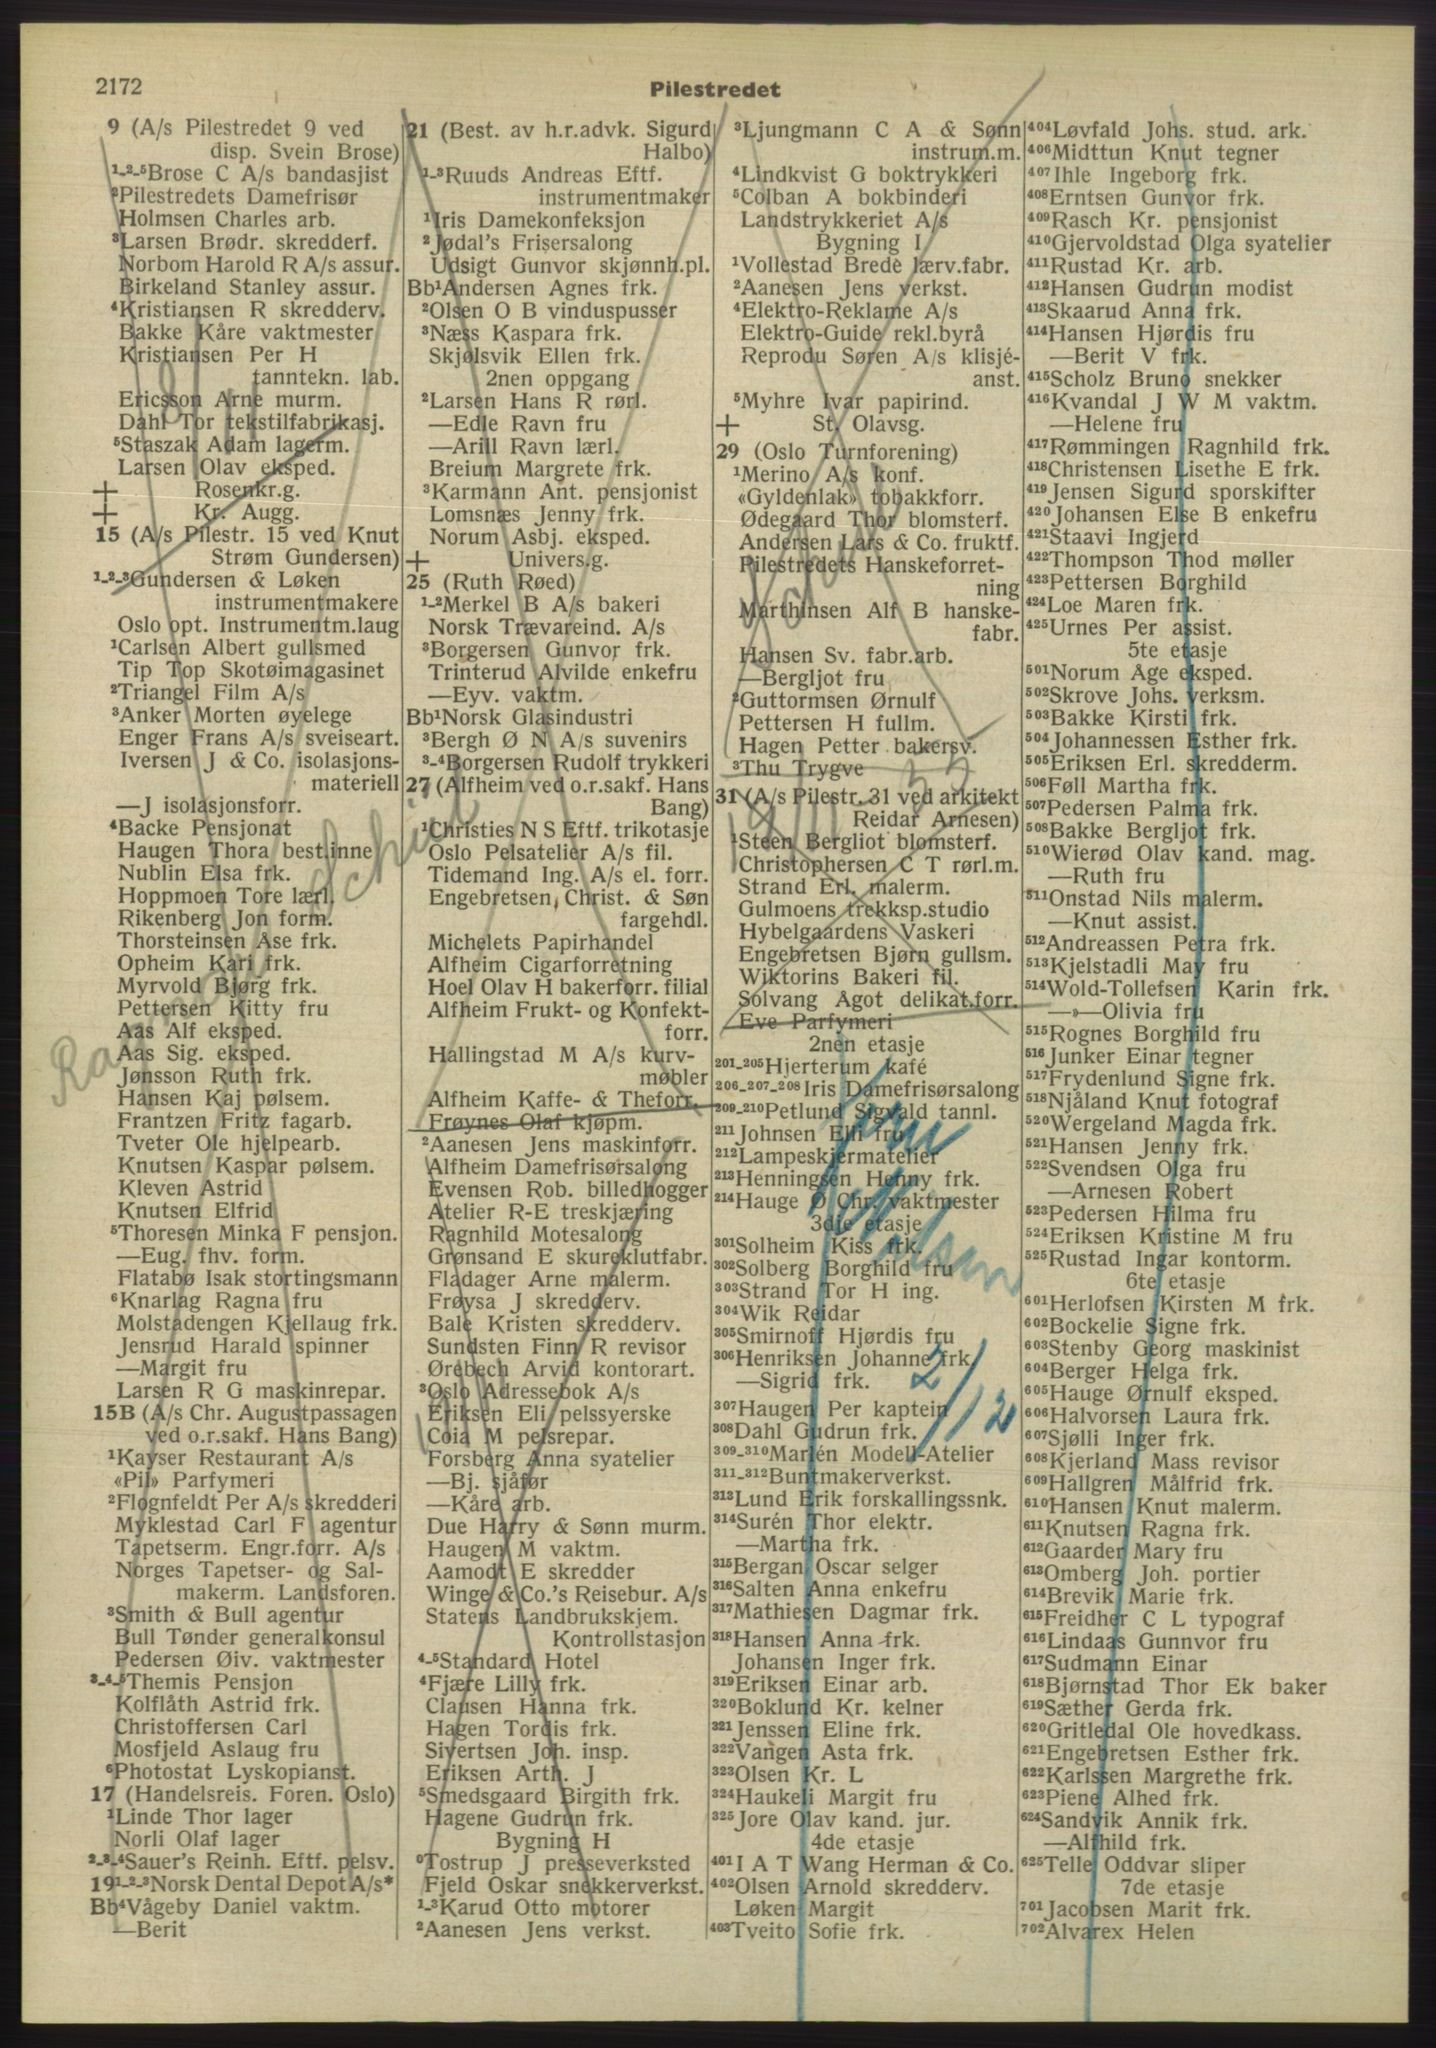 2172
Pilestredet
9 (A/s Pilestredet 9 ved
disp. Svein Brose)
1-2-5Brose C A/s bandasjist
2Pilestredets Damefrisør
Holmsen Charles arb.
3Larsen Brødr. skredderf.
Norbom Harold R A/s assur.
Birkeland Stanley assur.
4Kristiansen R skredderv.
Bakke Kåre vaktmester
Kristiansen Per H
tanntekn. lab.
Ericsson Arne murm.
Dahl Tor tekstilfabrikasj.
5Staszak Adam lagerm.
Larsen Olav eksped.
+ Rosenkr.g.
+ Kr. Augg.
15 (A/s Pilestr. 15 ved Knut
Strøm Gundersen)
1-2-3Gundersen & Løken
instrumentmakere
Oslo opt. Instrumentm.laug
1Carlsen Albert gullsmed
Tip Top Skotøimagasinet
2Triangel Film A/s
3Anker Morten øyelege
Enger Frans A/s sveiseart.
Iversen J & Co. isolasjons-
materiell
—J isolasjonsforr.
4Backe Pensjonat
Haugen Thora best.inne
Nublin Elsa frk.
Hoppmoen Tore lærl.
Rikenberg Jon form.
Thorsteinsen Åse frk.
Opheim Kari frk.
Myrvold Bjørg frk.
Pettersen Kitty fru
Aas Alf eksped.
Aas Sig. eksped.
Jønsson Ruth frk.
Hansen Kaj pølsem.
Frantzen Fritz fagarb.
Tveter Ole hjelpearb.
Knutsen Kaspar pølsem.
Kleven Astrid
Knutsen Elfrid
5Thoresen Minka F pensjon.
—Eug. fhv. form.
Flatabø Isak stortingsmann
6Knarlag Ragna fru
Molstadengen Kjellaug frk.
Jensrud Harald spinner
—Margit fru
Larsen R G maskinrepar.
15B (A/s Chr. Augustpassagen
ved o.r.sakf. Hans Bang)
1Kayser Restaurant A/s
«Pil» Parfymeri
2Flognfeldt Per A/s skredderi
Myklestad Carl F agentur
Tapetserm. Engr.forr. A/s
Norges Tapetser- og Sal-
makerm. Landsforen.
3Smith & Bull agentur
Bull Tønder generalkonsul
Pedersen Øiv. vaktmester
3-4-5Themis Pensjon
Kolflåth Astrid frk.
Christoffersen Carl
Mosfjeld Aslaug fru
6Photostat Lyskopianst.
17 (Handelsreis. Foren. Oslo)
1Linde Thor lager
Norli Olaf lager
2-3-4Sauer's Reinh. Eftf. pelsv.
19 1-2-3Norsk Dental Depot A/s*
Bb4Vågeby Daniel vaktm.
—Berit
21 (Best. av h.r.advk. Sigurd
Halbo)
1-3Ruuds Andreas Eftf.
instrumentmaker
1Iris Damekonfeksjon
2Jødal's Frisersalong
Udsigt Gunvor skjønnh.pl.
Bb1Andersen Agnes frk.
2Olsen O B vinduspusser
3Næss Kaspara frk.
Skjølsvik Ellen frk.
2nen oppgang
2Larsen Hans R rørl.
—Edle Ravn fru
—Arill Ravn lærl.
Breium Margrete frk.
3Karmann Ant. pensjonist
Lomsnæs Jenny frk.
Norum Asbj. eksped.
+ Univers.g.
25 (Ruth Røed)
1-2Merkel B A/s bakeri
Norsk Trævareind. A/s
3Borgersen Gunvor frk.
Trinterud Alvilde enkefru
—Eyv. vaktm.
Bb1Norsk Glasindustri
3Bergh Ø N A/s suvenirs
3-4Borgersen Rudolf trykkeri
27 (Alfheim ved o.r.sakf. Hans
Bang)
1Christies N S Eftf. trikotasje
Oslo Pelsatelier A/s fil.
Tidemand Ing. A/s el. forr.
Engebretsen, Christ. & Søn
fargehdl.
Michelets Papirhandel
Alfheim Cigarforretning
Hoel Olav H bakerforr. filial
Alfheim Frukt- og Konfekt-
forr.
Hallingstad M A/s kurv-
møbler
Alfheim Kaffe- & Theforr.
Frøynes Olaf kjøpm.
2Aanesen Jens maskinforr.
Alfheim Damefrisørsalong
Evensen Rob. billedhogger
Atelier R-E treskjæring
Ragnhild Motesalong
Grønsand E skureklutfabr.
Fladager Arne malerm.
Frøysa J skredderv.
Bale Kristen skredderv.
Sundsten Finn R revisor
Ørebech Arvid kontorart.
3Oslo Adressebok A/s
Eriksen Eli pelssyerske
Coia M pelsrepar.
Forsberg Anna syatelier
—Bj. sjåfør
—Kåre arb.
Due Harry & Sønn murm.
Haugen M vaktm.
Aamodt E skredder
Winge & Co.'s Reisebur. A/s
Statens Landbrukskjem.
Kontrollstasjon
4-5Standard Hotel
4Fjære Lilly frk.
Clausen Hanna frk.
Hagen Tordis frk.
Sivertsen Joh. insp.
Eriksen Arth. J
5Smedsgaard Birgith frk.
Hagene Gudrun frk.
Bygning H
0Tostrup J presseverksted
Fjeld Oskar snekkerverkst.
1-3Karud Otto motorer
2Aanesen Jens verkst.
3Ljungmann C A & Sønn
instrum.m.
4Lindkvist G boktrykkeri
5Colban A bokbinderi
Landstrykkeriet A/s
Bygning I
1Vollestad Brede lærv.fabr.
2Aanesen Jens verkst.
4Elektro-Reklame A/s
Elektro-Guide rekl.byrå
Reprodu Søren A/s klisjé-
anst.
5Myhre Ivar papirind.
+ St. Olavsg.
29 (Oslo Turnforening)
1Merino A/s konf.
«Gyldenlak» tobakkforr.
Ødegaard Thor blomsterf.
Andersen Lars & Co. fruktf.
Pilestredets Hanskeforret-
ning
Marthinsen Alf B hanske-
fabr.
Hansen Sv. fabr.arb.
—Bergljot fru
2Guttormsen Ørnulf
Pettersen H fullm.
Hagen Petter bakersv.
3Thu Trygve
31 (A/s Pilestr. 31 ved arkitekt
Reidar Arnesen)
1Steen Bergliot blomsterf.
Christophersen C T rørl.m.
Strand Erl. malerm.
Gulmoens trekksp.studio
Hybelgaardens Vaskeri
Engebretsen Bjørn gullsm.
Wiktorins Bakeri fil.
Solvang Ågot delikat.forr.
Eve Parfymeri
2nen etasje
201-205Hjerterum kafé
206-207-208Iris Damefrisørsalong
209-210Petlund Sigvald tannl.
211Johnsen Elli fru
212Lampeskjermatelier
213Henningsen Henny frk.
214Hauge Ø Chr. vaktmester
3dje etasje
301Solheim Kiss frk.
302Solberg Borghild fru
303Strand Tor H ing.
304Wik Reidar
305Smirnoff Hjørdis fru
306Henriksen Johanne frk.
—Sigrid frk.
307Haugen Per kaptein
308Dahl Gudrun frk.
309-310Marlén Modell-Atelier
311-312Buntmakerverkst.
313Lund Erik forskallingssnk.
314Surén Thor elektr.
—Martha frk.
315Bergan Oscar selger
316Salten Anna enkefru
317Mathiesen Dagmar frk.
318Hansen Anna frk.
Johansen Inger frk.
319Eriksen Einar arb.
320Boklund Kr. kelner
321Jenssen Eline frk.
322Vangen Asta frk.
323Olsen Kr. L
324Haukeli Margit fru
325Jore Olav kand. jur.
4de etasje
401I A T Wang Herman & Co.
402Olsen Arnold skredderv.
Løken Margit
403Tveito Sofie frk.
404Løvfald Johs. stud. ark.
406Midttun Knut tegner
407Ihle Ingeborg frk.
408Erntsen Gunvor frk.
409Rasch Kr. pensjonist
410Gjervoldstad Olga syatelier
411Rustad Kr. arb.
412Hansen Gudrun modist
413Skaarud Anna frk.
414Hansen Hjørdis fru
—Berit V frk.
415Scholz Bruno snekker
416Kvandal J W M vaktm.
—Helene fru
417Rømmingen Ragnhild frk.
418Christensen Lisethe E frk.
419Jensen Sigurd sporskifter
420Johansen Else B enkefru
421Staavi Ingjerd
422Thompson Thod møller
423Pettersen Borghild
424Loe Maren frk.
425Urnes Per assist.
5te etasje
501Norum Åge eksped.
502Skrove Johs. verksm.
503Bakke Kirsti frk.
504Johannessen Esther frk.
505Eriksen Erl. skredderm.
506Føll Martha frk.
507Pedersen Palma frk.
508Bakke Bergljot frk.
510Wierød Olav kand. mag.
—Ruth fru
511Onstad Nils malerm.
—Knut assist.
512Andreassen Petra frk.
513Kjelstadli May fru
514Wold-Tollefsen Karin frk.
—»—Olivia fru
515Rognes Borghild fru
516Junker Einar tegner
517Frydenlund Signe frk.
518Njåland Knut fotograf
520Wergeland Magda frk.
521Hansen Jenny frk.
522Svendsen Olga fru
—Arnesen Robert
523Pedersen Hilma fru
524Eriksen Kristine M fru
525Rustad Ingar kontorm.
6te etasje
601Herlofsen Kirsten M frk.
602Bockelie Signe frk.
603Stenby Georg maskinist
604Berger Helga frk.
605Hauge Ørnulf eksped.
606Halvorsen Laura frk.
607Sjølli Inger frk.
608Kjerland Mass revisor
609Hallgren Målfrid frk.
610Hansen Knut malerm.
611Knutsen Ragna frk.
612Gaarder Mary fru
613Omberg Joh. portier
614Brevik Marie frk.
615Freidher C L typograf
616Lindaas Gunnvor fru
617Sudmann Einar
618Bjørnstad Thor Ek baker
619Sæther Gerda frk.
620Gritledal Ole hovedkass.
621Engebretsen Esther frk.
622Karlssen Margrethe frk.
623Piene Alhed frk.
624Sandvik Annik frk.
—Alfhild frk.
625Telle Oddvar sliper
7de etasje
701Jacobsen Marit frk.
702Alvarex Helen
2/12